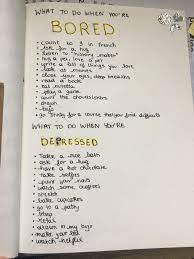 WHAT TO DO WHEN YOU'RE
BORED
• count to 3 in french
• ask for a hug
• listen to
• hug a pen, love a pet
• write a list of things you love
• look at memes
• close your eyes, deep breaths
• read a book
• eat nutella
• play a game
• count the
•
• dojo
• go study for a course that you find difficult
WHAT TO DO WHEN YOU'RE
DEPRESSED
• take a nice bath
• ask for a hug
• have a hot chocolate
• take selfies
• paint your nails
• watch some
•
• bake cupcakes
• go to a party
• sleep
•
• drown in my
• make your bed
• watch netflix